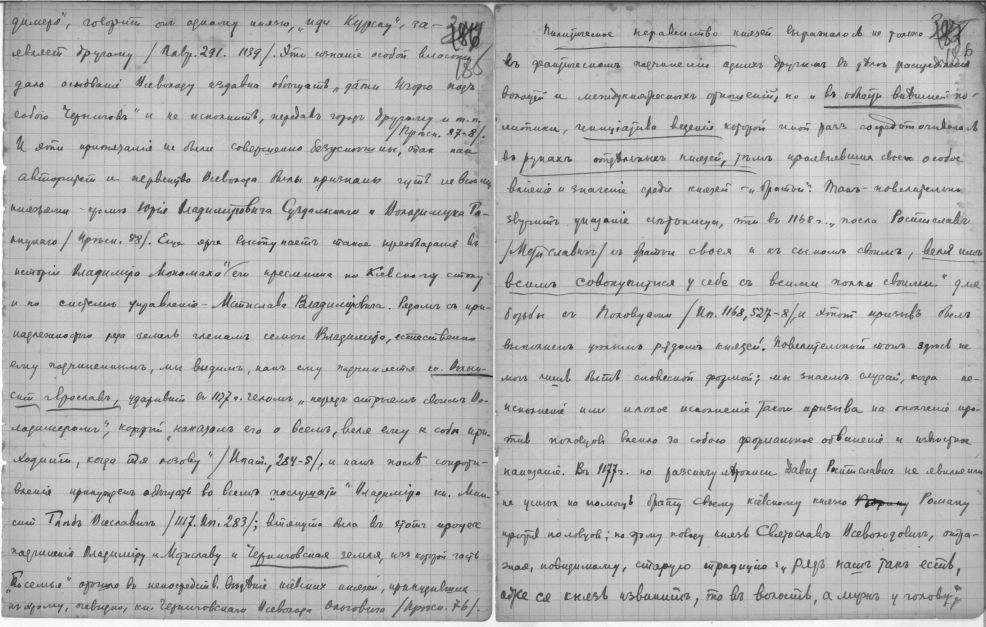 димеръ", говоритъ онъ одному князю, "иди Курску", за-
являетъ другому /Лавр. 291. 1139/. Эти
186
дало основаніе Всеволоду издавна обѣщать "дати Игорю подъ
собою Черниговъ" и не исполнить, передавъ городъ другому и т.п.
/Прѣсн. 87-8/.
И эти притязанія не были совершенно безусловны, такъ какъ
авторитетъ и первенство Всеволода были признаны
князьями - кромѣ Юрія Владимировича Суздальскаго и Володимірка Га-
лицкаго /Прѣсн. 78/. Еще ярче выступаетъ такое преобладаніе въ
исторіи Владиміра Мономаха и его преемника по Кіевскому столу
и по системѣ управленія - Мстислава Владиміровича. Рядомъ съ при-
надлежностью ряда земель членамъ семьи Владиміра, естественно
ему подчиненнымъ, мы видимъ, какъ ему подчиняется кн. Волын-
скій Ярославъ, ударившій въ 1117 г. челомъ "передъ стрыемъ своимъ Во-
лодимеромъ", который "наказавъ его о всемъ, веля ему к собѣ при-
ходити, когда тя позову" /Ипат., 284-5/, и какъ послѣ сопроти-
вленія принужденъ обѣщать во всемъ "послушати" Владиміра кн. Мин-
скій Глѣбъ Всеславичъ /1117. Ип. 283/; втянута была въ этотъ процессъ
подчиненія Владиміру и Мстиславу и Черниговская земля, изъ которой часть
"Посемье" отошло въ непосредств. владѣніе кіевскихъ князей, принудившихъ
къ этому, очевидно, кн. Черниговскаго Всеволода Ольговича /Прѣсн. 76/.
186
Политическое неравенство князей выражалось не только
въ фактическомъ подчиненіи однихъ другимъ въ дѣлѣ распредѣленія
волостей и междукняжескихъ отношеній, но и въ области внѣшней по-
литики, иниціатива веденія которой иной разъ сосредоточивалась
въ рукахъ отдѣльныхъ князей, тѣмъ проявлявшихъ свое особое
вліяніе и значеніе среди князей - "братьи". Такъ повелительно
звучитъ указаніе лѣтописи, что въ 1168 г. "посла Ростиславъ
/Мстиславичъ/ къ братьи своея и къ сыномъ своимъ, веля имъ
всимъ совокупитися у себе съ всими полкы своими" для
борьбы съ Половцами /Ип. 1168, 527-8/, и этотъ призывъ былъ
выполненъ цѣлымъ рядомъ князей. Повелительный тонъ здѣсь не
могъ лишь быть словесной формой; мы знаемъ случай, когда не-
исполненіе или плохое исполненіе такого призыва на ополченіе про-
тивъ половцовъ влекло за собою формальное обвиненіе и извѣстное
наказаніе. Въ 1177 г. по разсказу лѣтописи Давид Ростиславич не явился или
не успѣлъ на помощь брату своему кіевскому князю Роману
противъ половцов; по этому поводу князь Святославъ Всеволодовичъ, отра-
жая, повидимому, старую традицію: "Рядъ нашъ такъ есть,
оже ся князь извинить, то въ волость, а мужь у голову";